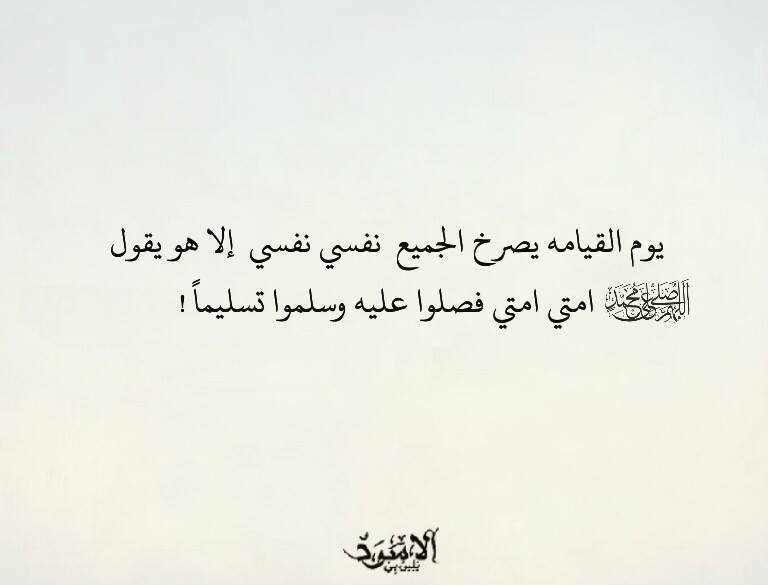 يوم القيامه يصرخ الجميع نفسي نفسي إلا هو يقول
اللهم صل على محمد امتي امتي فصلوا عليه وسلموا تسليماً !
الاسود
يليق بي